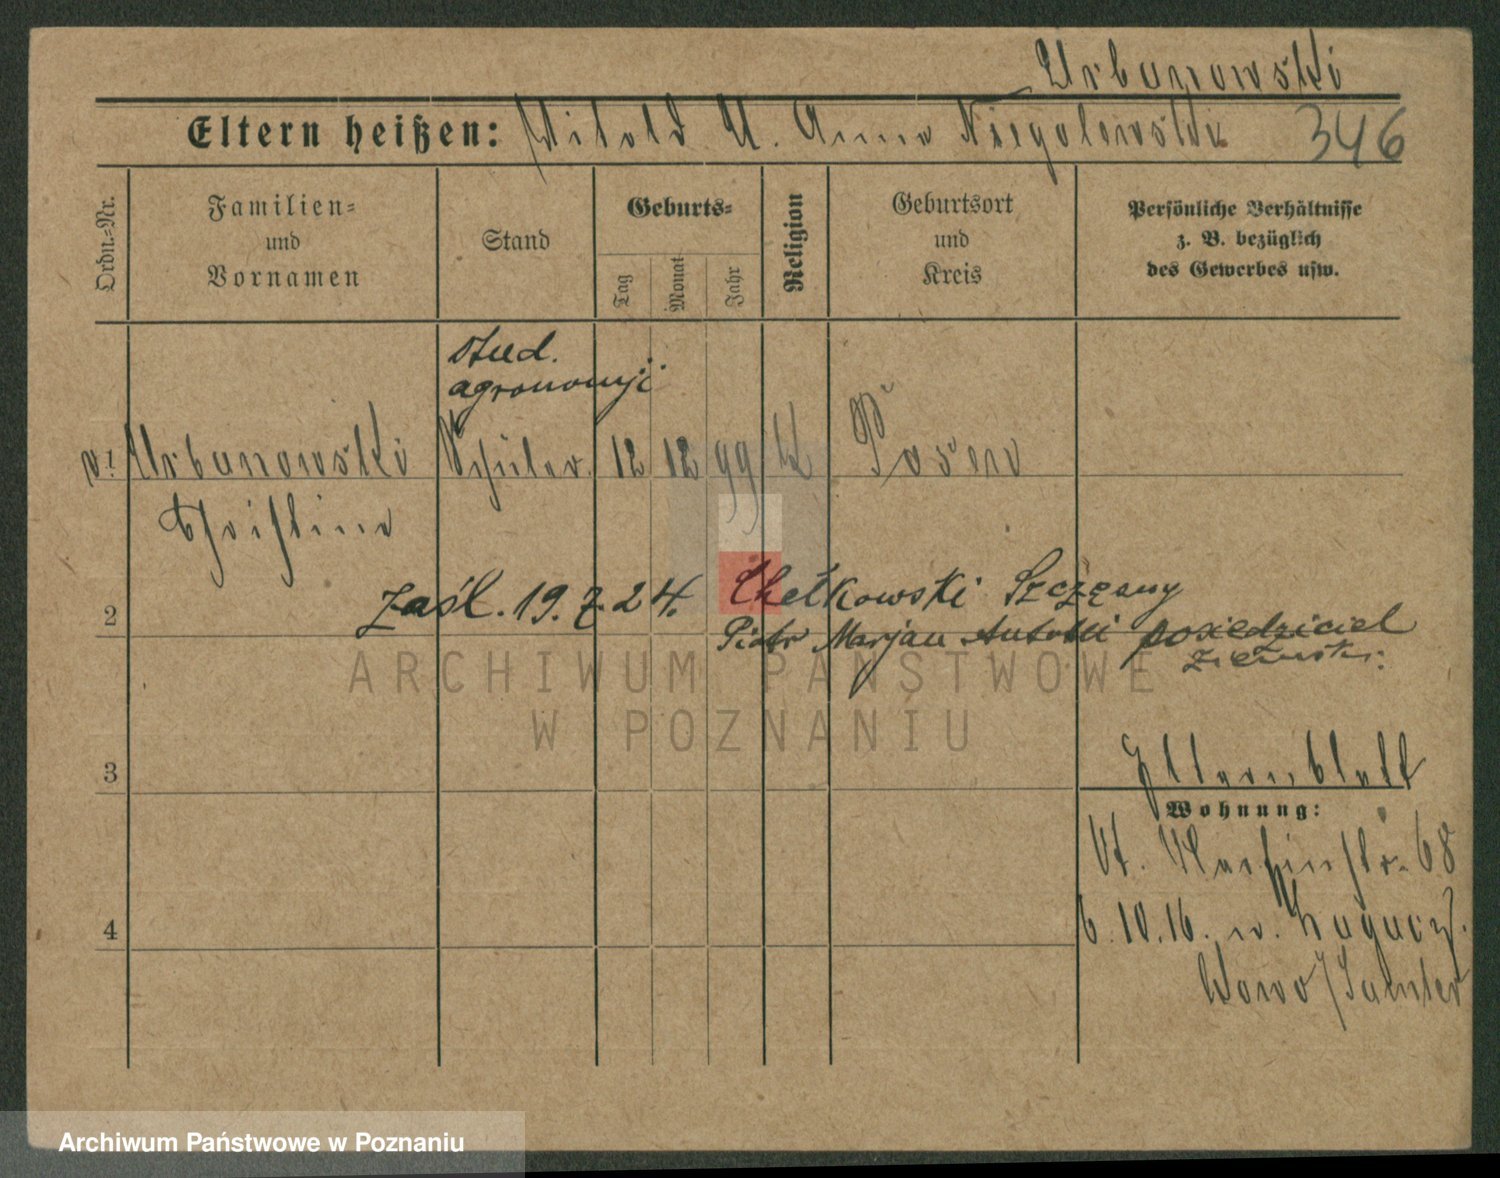 Urbanowski
Eltern heißen: Witold U. Anna Niegolewska 346
Ordn.-Nr.
Familien-
und
Vornamen
Stand
Geburts-
Tag
Monat
Jahr
Religion
Geburtsort
und
Kreis
Persönliche Verhältnisse
z. B. bezüglich
des Gewerbes usw.
stud.
agronomji
1 Urbanowski Schüler. 12 12 99 K Posen
Christine
2 zaśl. 19.7.24. Chełkowski Szczęsny
Piotr Marjan Antoni posiedziciel
ziemski.
ARCHIWUM PAŃSTWOWE
W POZNANIU
3
Elternblatt
Wohnung:
St. Martinstr. 68
4
6.10.16. n.
/Samter
Archiwum Państwowe w Poznaniu